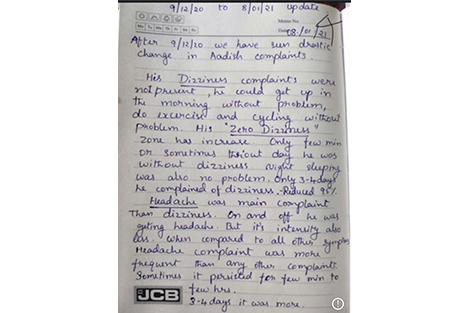 9/12/20 to 8/01/21 update
Memo No.
Date 08/01/21
After 9/12/20 we have seen drastic
change in Aadish complaints.
His Dizziness complaints were
not present, he could get up in
the morning without problem,
do excercise and cycling without
problem. His "Zero Dizziness"
zone has increase. Only few min
or sometimes th'out day he was
without dizziness night sleeping
was also no problem. Only 3-4 days
he complained of dizziness. Reduced 95%
Headache was main complaint
than dizziness. On and off he was
geting headache. But it's intensity also
less. When compared to all other symptoms
Headache complaint was more
frequent than any other complaint.
Sometimes it persisted for few min to
few hrs.
JCB
3-4 days it was more.